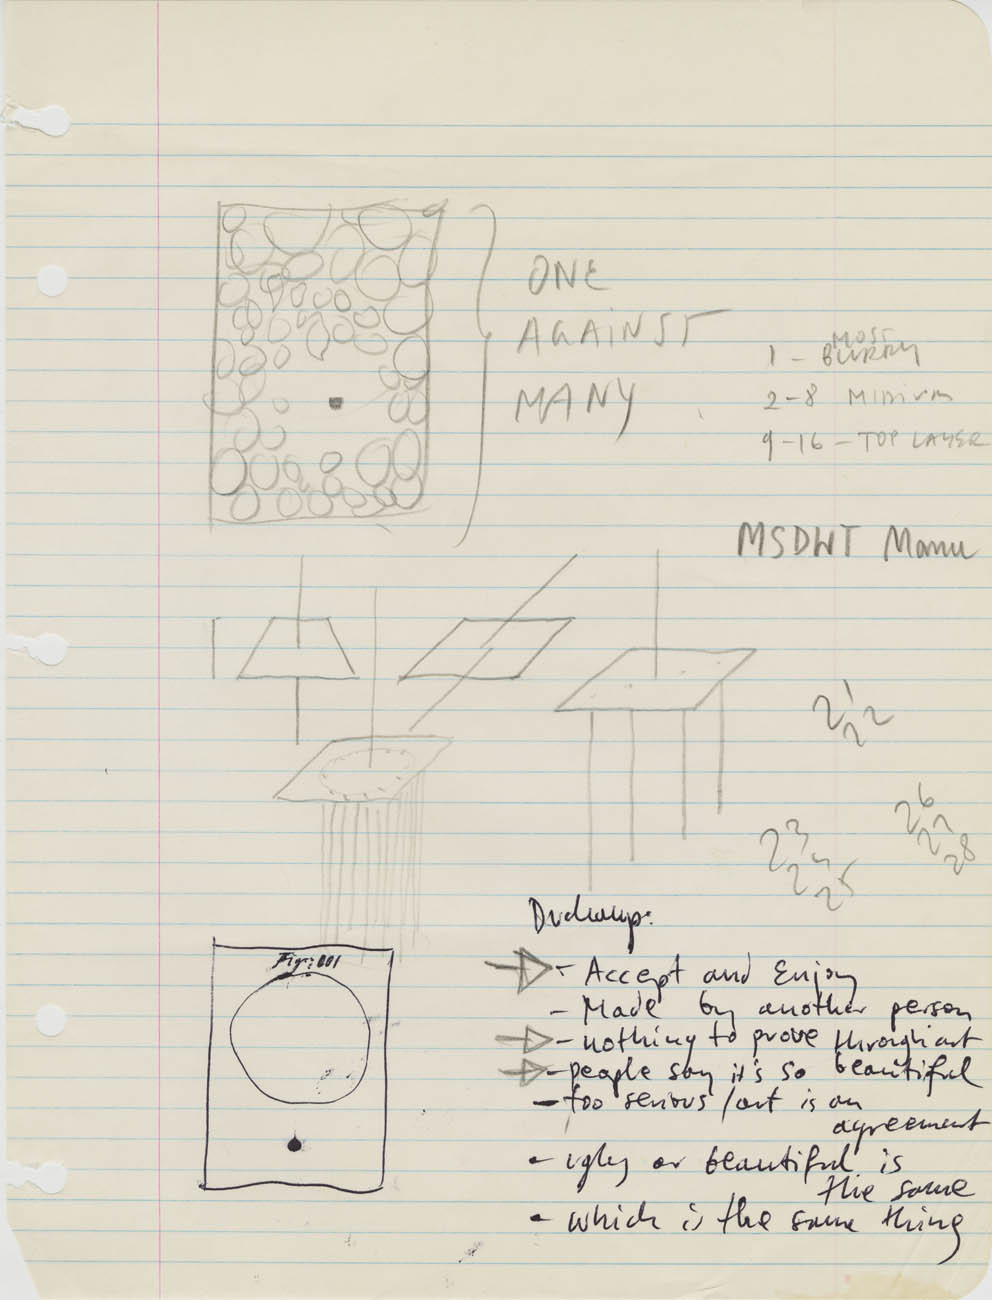 ONE
AGAINST
MANY
MOST
1 - BLURRY
2-8 MEDIUM
9-16 - TOP LAYER
MSDWT
2 1
2 2
2 3
2 4
2 5
2 6
2 7
2 8
Fig: 001
Duchamp:
- Accept and Enjoy
- Made by another person
- nothing to prove through art
- people say it's so beautiful
- too serious / art is an
agreement
- ugly or beautiful is
the same
- which is the same thing